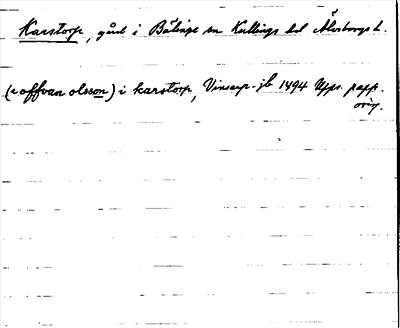 Karstorp, gård i Bälinge sn Kullings hd Älvsborgs l.
(a offvan olsson) i karstorp, Vinsarp-jb 1494 Upps. papp.
orig.